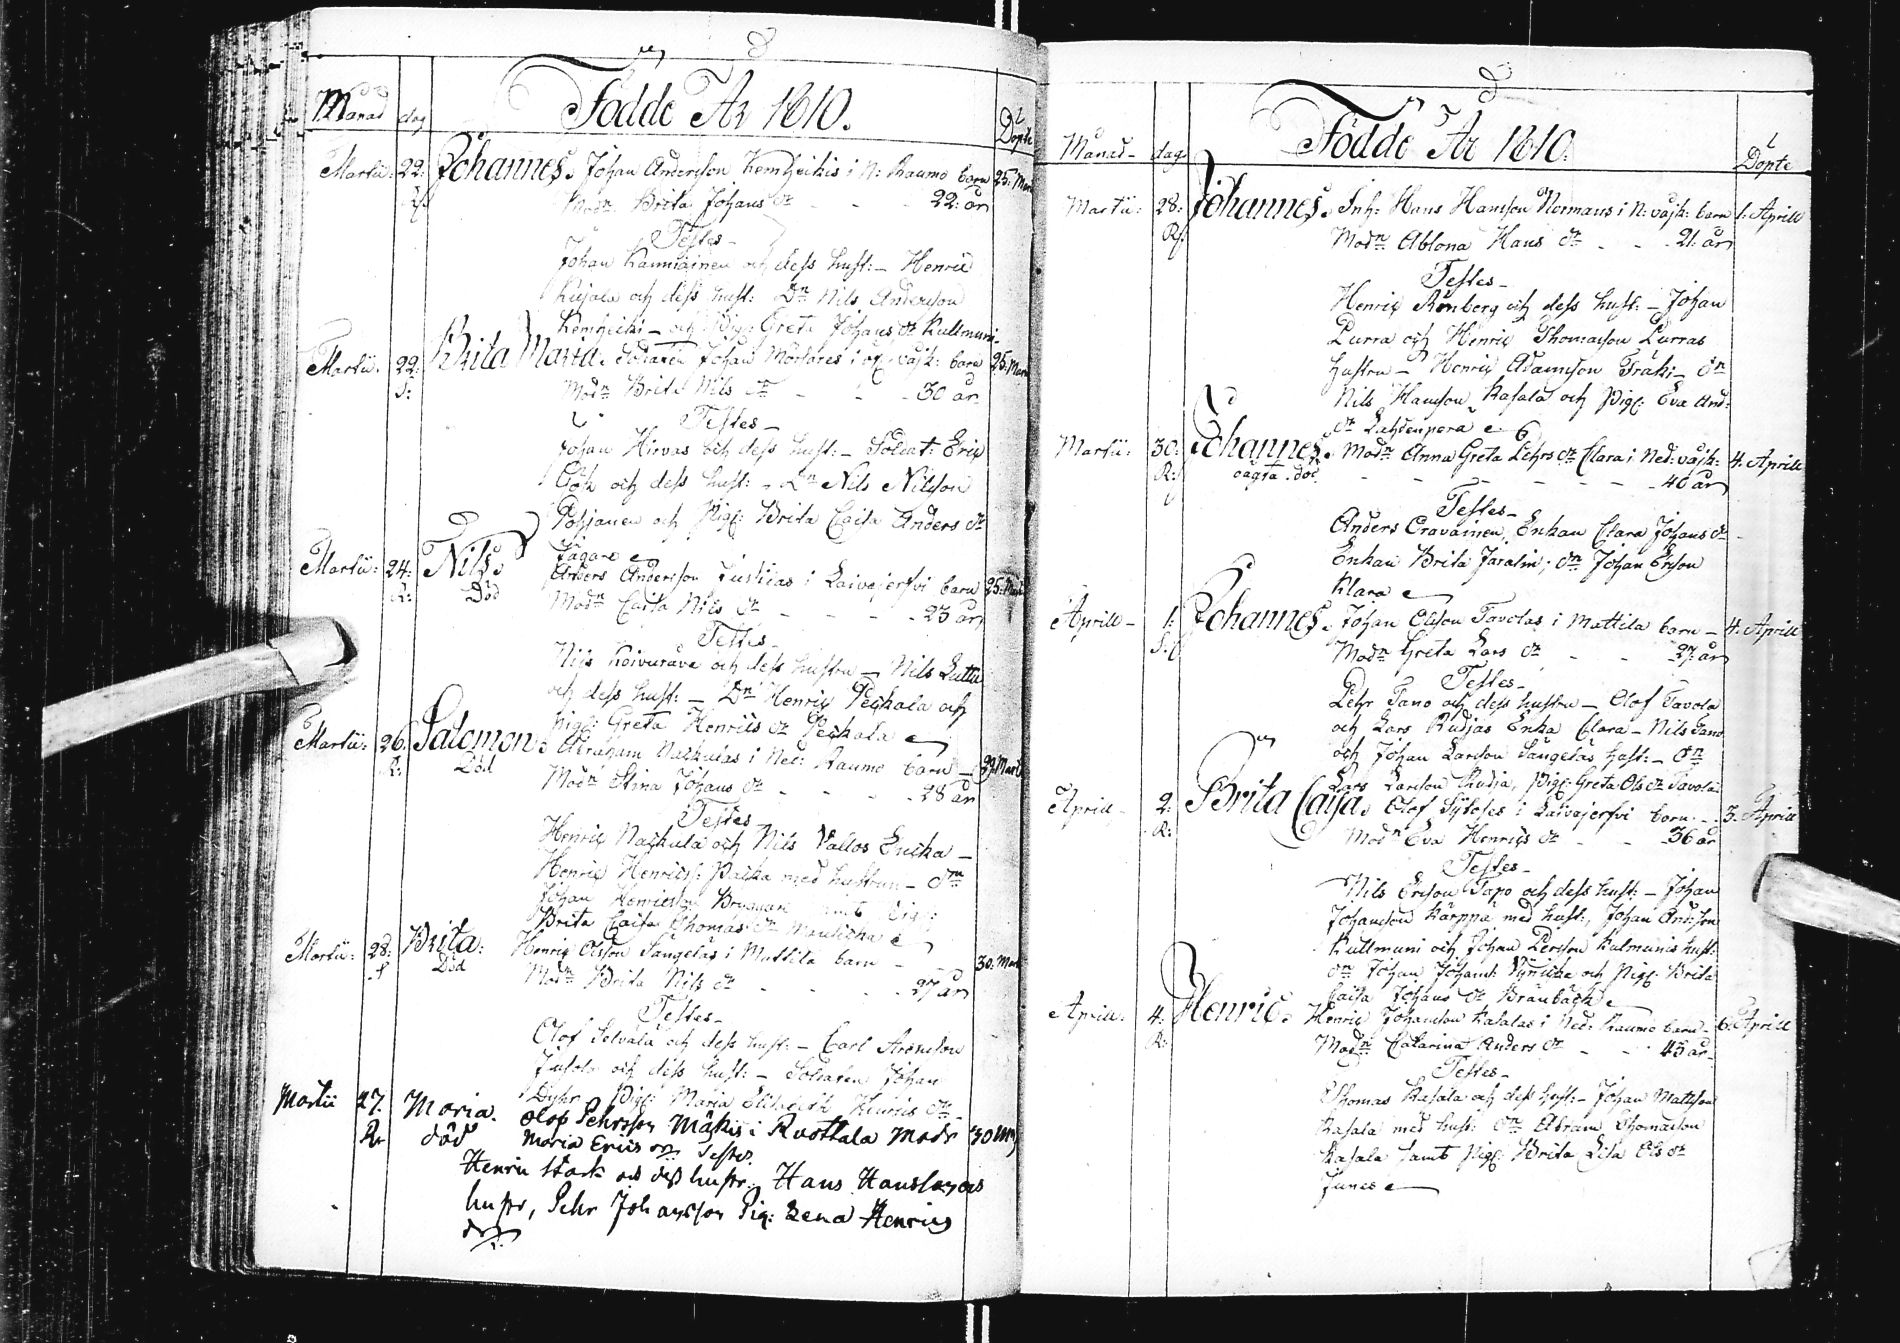 Månad dag Födde År 1810. Döpte
Martii: 22: Johannes. Johan Andersson Kemheikis i N: Raumo barn 25: Mart
Modn Brita Johans dr - - - 22: år
Testes
Johan Kanniainen och dess hust: - Henric
Kujala och dess hust: Dn Nils Andersson
Kemheiki - och Pig: Greta Johans dr Kultmuni
Martii: 22: Brita Maria. Soldaten Johan Mortares i öf: vojk: barn 25: Mart
S: Modn Brita Nils dr - - - 30 år
Testes
Johan Hirvas och dess hust: - Soldat: Eric
och dess hust: - Dn Nils Nilsson
Pohjanen och Pig: Brita Caisa Anders dr
Jägare
Martii: 24: Nils. Anders Andersson Justiias i Laivajerfvi barn 25: Mart
R: Död Modn Caisa Nils dr - - - 23 år
Testes
Nils Koivurava och dess hustru - Nils Luttu
och dess hust: - Dn Henric Peckala och
Pig: Greta Henrics dr Peckala
Martii: 26. Salomon. Abraham Nachulas i Ned: Raumo barn - 29 Marti
R: Död Modn Stina Johans dr - - - 28 år
Testes
Henric Nachula och Nils Vallos Encka -
Henric Henrics: Paika med hustrun - Drn
Johan Henricsson samt Pig:
Brita Caisa Thomas dr
Martii: 28: Brita: Henric Olsson Sangelas i Mattila barn - 30: Mart
S Död Modn Brita Nils dr - - - 27 år
Testes
Olof Selvälä och dess hust: - Carl Aronsson
Jufola och dess hust: - Soldaten Johan
Dyhr Pig: Maria Elisabeth Henrics dr
Martii 27. Maria. Olof Pehrsson Mäkis i Kvottala Modr 30 M
R död Maria Erics dr Testes.
Henric Stark och dess hustr. Hans Hanssons
hustr, Pehr Johansson Pig: Lena Henrics
dr
Månad dag Födde År 1810. Döpte
Martii: 28: Johannes. Inh: Hans Hansson Normans i N: vojk: barn 1: Aprill
R: Modn Ablona Hans dr - - 21: år
Testes
Henric Rönberg och dess hust: - Johan
Purra och Henric Thomasson Purras
hustru - Henric Adamsson Fräki - Dn
Nils Hansson Kasala och Pig: Eva And:
dr Lahdenpera
Martii: 30: Johannes. Modn Anna Greta Pehrs dr Clara i Ned: vojk: 4: Aprill
R: oägta. död - - - 40 år
Testes
Anders Oravainen, Enkan Clara Johans dr
Enkan Brita Jaralin; Drn Johan Ersson
Klara
Aprill - 1: Johannes. Johan Olsson Tavolas i Mattila barn - 4: Aprill
S: Modn Greta Lars dr - - 27: år
Testes
Pehr Tano och dess hustru - Olof Tavola
och Lars Rudjas Enka Clara - Nils Tano
och Johan Larsson Sangelas hust: - Drn
Lars Larsson Rudja, Pig: Greta Ols dr Tavola
Aprill - 2: Brita Caisa. Olof Sytoles i Laivajerfvi barn - 3. Aprill
R: Modn Eva Henrics dr - - 36 år
Testes
Nils Ersson Tapo och dess hust: - Johan
Johansson Kärppa med hust:, Johan Andersson
Kultmuni och Johan Persson Kulmunis hust:
Drn Johan Johans: Vynicka och Pig: Brita
Caisa Johans dr Brännbäck
Aprill: 4: Henric. Henric Johansson Kasalas i Ned: Raumo barn - 6: Aprill
R: Modn Catarina Anders dr - - 45 år
Testes
Thomas Kasala och dess hust: - Johan Mattsson
Kasala med hust: Drn Abram Thomasson
Kasala samt Pig: Brita Lisa Ols dr
Junes